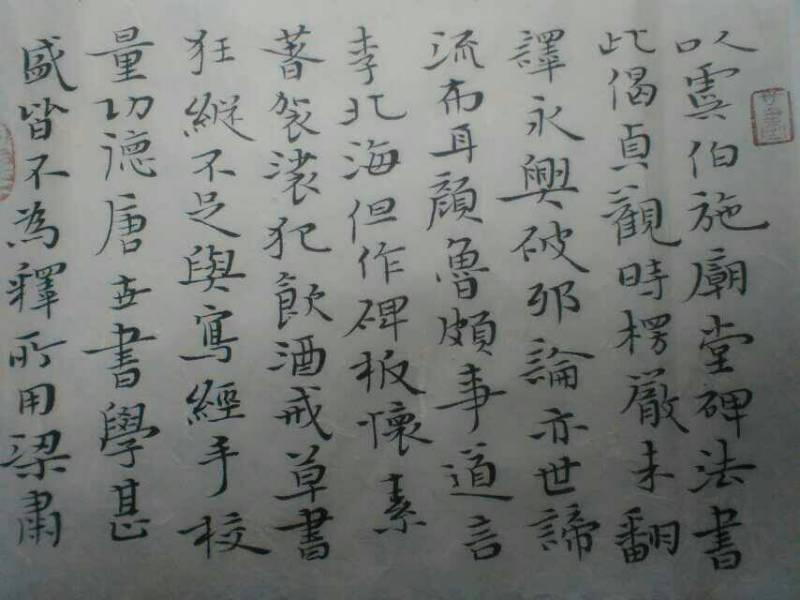 以虞伯施廟堂碑法書
此偈貞觀時楞嚴未翻
譯永興破邪論亦世諦
流布耳顏魯頗事道言
李北海但作碑板懷素
著袈裟犯飲酒戒草書
狂縱不足與寫經手校
量功德唐世書學甚
盛皆不為釋所用梁肅